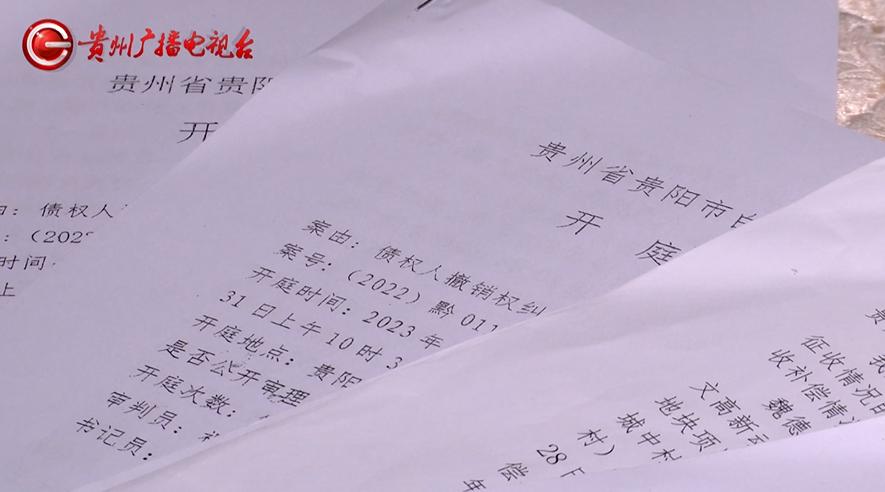 贵州广播电视台
贵州省贵阳
开
由：债权人
：（202
时间
上
贵州省贵阳市白
开 庭
案由：债权人撤销权纠
案号：（2022）黔011
开庭时间：2023年
31日上午10时3
开庭地点：贵阳
是否公开审理
开庭次数：
审判员：
书记员：
贵
我
征收情况
收补偿情
魏德
文高新
地块项
城中村
村）
28
偿
年